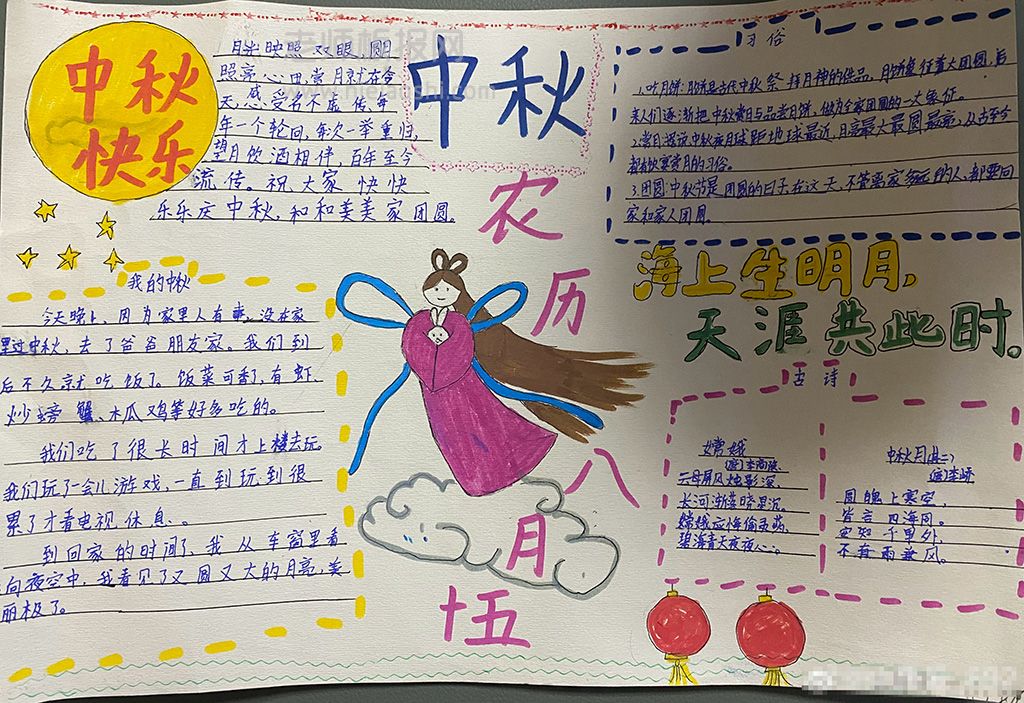 中秋
快乐
月光映照双眼,圆月
照亮心田赏月就在今
天,感受名不虚传,每
年一个轮回,每次一举重归,
望月饮酒相伴,百年至今
流传。祝大家快快
乐乐庆中秋,和和美美家团圆。
中秋
习俗
1.吃月饼:月饼是古代中秋祭拜月神的供品,月饼象征着大团圆,后
来人们逐渐把中秋赏月与品尝月饼,做为全家团圆的一大象征。
2.赏月:据说中秋夜月球距地球最近,月亮最大最圆最亮,从古至今
都有饮宴赏月的习俗。
3.团圆:中秋节是团圆的日子在这天,不管离家多远的人,都要回
家和家人团圆。
农
历
八
月
十五
海上生明月,
天涯共此时。
我的中秋
今天晚上,因为家里人有事,没在家
里过中秋,去了爸爸朋友家。我们到
后不久就吃饭了。饭菜可香了,有虾、
炒螃蟹、木瓜鸡等好多吃的。
我们吃了很长时间才上楼去玩。
我们玩了一会儿游戏,一直到玩到很
累了才看电视,休息。。
到回家的时间了,我从车窗里看
向夜空中,我看见了又圆又大的月亮,美
丽极了。
古诗
嫦娥
(唐)李商隐
云母屏风烛影深,
长河渐落晓星沉。
嫦娥应悔偷灵药,
碧海青天夜夜心。
中秋月(其二)
(唐)李峤
圆魄上寒空,
皆言四海同。
安知千里外,
不有雨兼风。